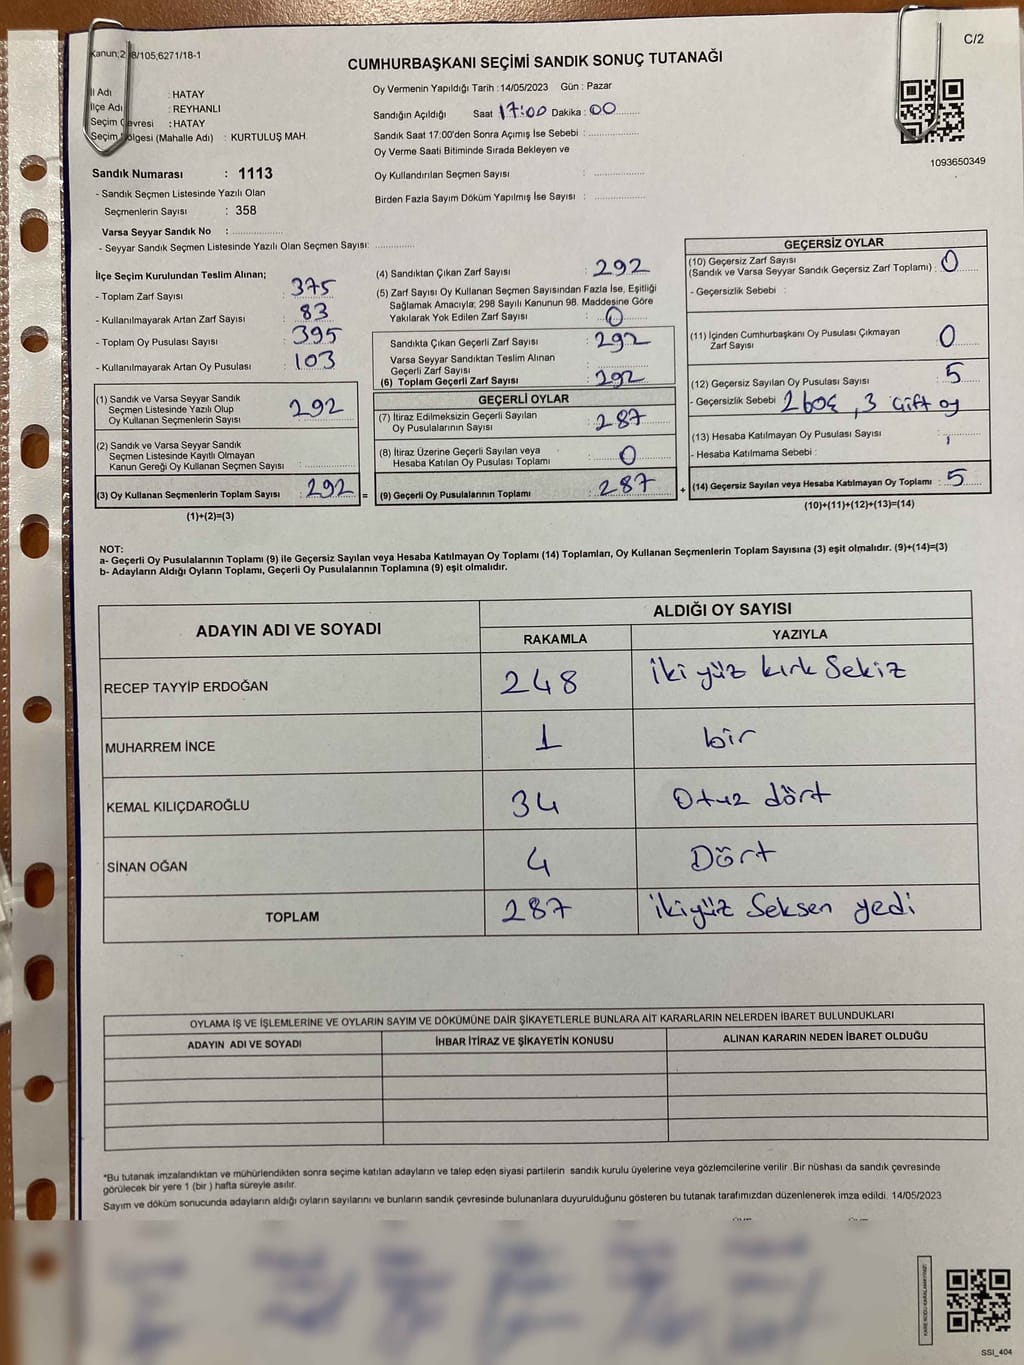 Kanun;298/105,6271/18-1
C/2
CUMHURBAŞKANI SEÇİMİ SANDIK SONUÇ TUTANAĞI
İl Adı : HATAY
İlçe Adı : REYHANLI
Seçim Çevresi : HATAY
Seçim Bölgesi (Mahalle Adı) : KURTULUŞ MAH.
Sandık Numarası : 1113
- Sandık Seçmen Listesinde Yazılı Olan
Seçmenlerin Sayısı : 358
Varsa Seyyar Sandık No :
- Seyyar Sandık Seçmen Listesinde Yazılı Olan Seçmen Sayısı:
Oy Vermenin Yapıldığı Tarih : 14/05/2023 Gün : Pazar
Sandığın Açıldığı Saat 17:00 Dakika : 00
Sandık Saat 17:00'den Sonra Açımış İse Sebebi :
Oy Verme Saati Bitiminde Sırada Bekleyen ve
Oy Kullandırılan Seçmen Sayısı :
Birden Fazla Sayım Döküm Yapılmış İse Sayısı :
1093650349
İlçe Seçim Kurulundan Teslim Alınan;
- Toplam Zarf Sayısı : 375
- Kullanılmayarak Artan Zarf Sayısı : 83
- Toplam Oy Pusulası Sayısı : 395
- Kullanılmayarak Artan Oy Pusulası : 103
(1) Sandık ve Varsa Seyyar Sandık
Seçmen Listesinde Yazılı Olup
Oy Kullanan Seçmenlerin Sayısı : 292
(2) Sandık ve Varsa Seyyar Sandık
Seçmen Listesinde Kayıtlı Olmayan
Kanun Gereği Oy Kullanan Seçmen Sayısı :
(3) Oy Kullanan Seçmenlerin Toplam Sayısı : 292 =
(1)+(2)=(3)
(4) Sandıktan Çıkan Zarf Sayısı : 292
(5) Zarf Sayısı Oy Kullanan Seçmen Sayısından Fazla İse, Eşitliği
Sağlamak Amacıyla; 298 Sayılı Kanunun 98. Maddesine Göre
Yakılarak Yok Edilen Zarf Sayısı : 0
Sandıkta Çıkan Geçerli Zarf Sayısı : 292
Varsa Seyyar Sandıktan Teslim Alınan
Geçerli Zarf Sayısı :
(6) Toplam Geçerli Zarf Sayısı : 292
GEÇERLİ OYLAR
(7) İtiraz Edilmeksizin Geçerli Sayılan
Oy Pusulalarının Sayısı : 287
(8) İtiraz Üzerine Geçerli Sayılan veya
Hesaba Katılan Oy Pusulası Toplamı : 0
(9) Geçerli Oy Pusulalarının Toplamı : 287 +
GEÇERSİZ OYLAR
(10) Geçersiz Zarf Sayısı
(Sandık ve Varsa Seyyar Sandık Geçersiz Zarf Toplamı) : 0
- Geçersizlik Sebebi :
(11) İçinden Cumhurbaşkanı Oy Pusulası Çıkmayan
Zarf Sayısı : 0
(12) Geçersiz Sayılan Oy Pusulası Sayısı : 5
- Geçersizlik Sebebi 2 boş, 3 çift oy
(13) Hesaba Katılmayan Oy Pusulası Sayısı :
- Hesaba Katılmama Sebebi :
(14) Geçersiz Sayılan veya Hesaba Katılmayan Oy Toplamı : 5
(10)+(11)+(12)+(13)=(14)
NOT:
a- Geçerli Oy Pusulalarının Toplamı (9) ile Geçersiz Sayılan veya Hesaba Katılmayan Oy Toplamı (14) Toplamları, Oy Kullanan Seçmenlerin Toplam Sayısına (3) eşit olmalıdır. (9)+(14)=(3)
b- Adayların Aldığı Oyların Toplamı, Geçerli Oy Pusulalarının Toplamına (9) eşit olmalıdır.
ADAYIN ADI VE SOYADI
ALDIĞI OY SAYISI
RAKAMLA YAZIYLA
RECEP TAYYİP ERDOĞAN 248 iki yüz kırk Sekiz
MUHARREM İNCE 1 bir
KEMAL KILIÇDAROĞLU 34 Otuz dört
SİNAN OĞAN 4 Dört
TOPLAM 287 ikiyüz Seksen yedi
OYLAMA İŞ VE İŞLEMLERİNE VE OYLARIN SAYIM VE DÖKÜMÜNE DAİR ŞİKAYETLERLE BUNLARA AİT KARARLARIN NELERDEN İBARET BULUNDUKLARI
ADAYIN ADI VE SOYADI İHBAR İTİRAZ VE ŞİKAYETİN KONUSU ALINAN KARARIN NEDEN İBARET OLDUĞU
*Bu tutanak imzalandıktan ve mühürlendikten sonra seçime katılan adayların ve talep eden siyasi partilerin sandık kurulu üyelerine veya gözlemcilerine verilir .Bir nüshası da sandık çevresinde
görülecek bir yere 1 (bir ) hafta süreyle asılır.
Sayım ve döküm sonucunda adayların aldığı oyların sayılarını ve bunların sandık çevresinde bulunanlara duyurulduğunu gösteren bu tutanak tarafımızdan düzenlenerek imza edildi. 14/05/2023
KARE KODU KARALAMAYINIZ!
SSI_404